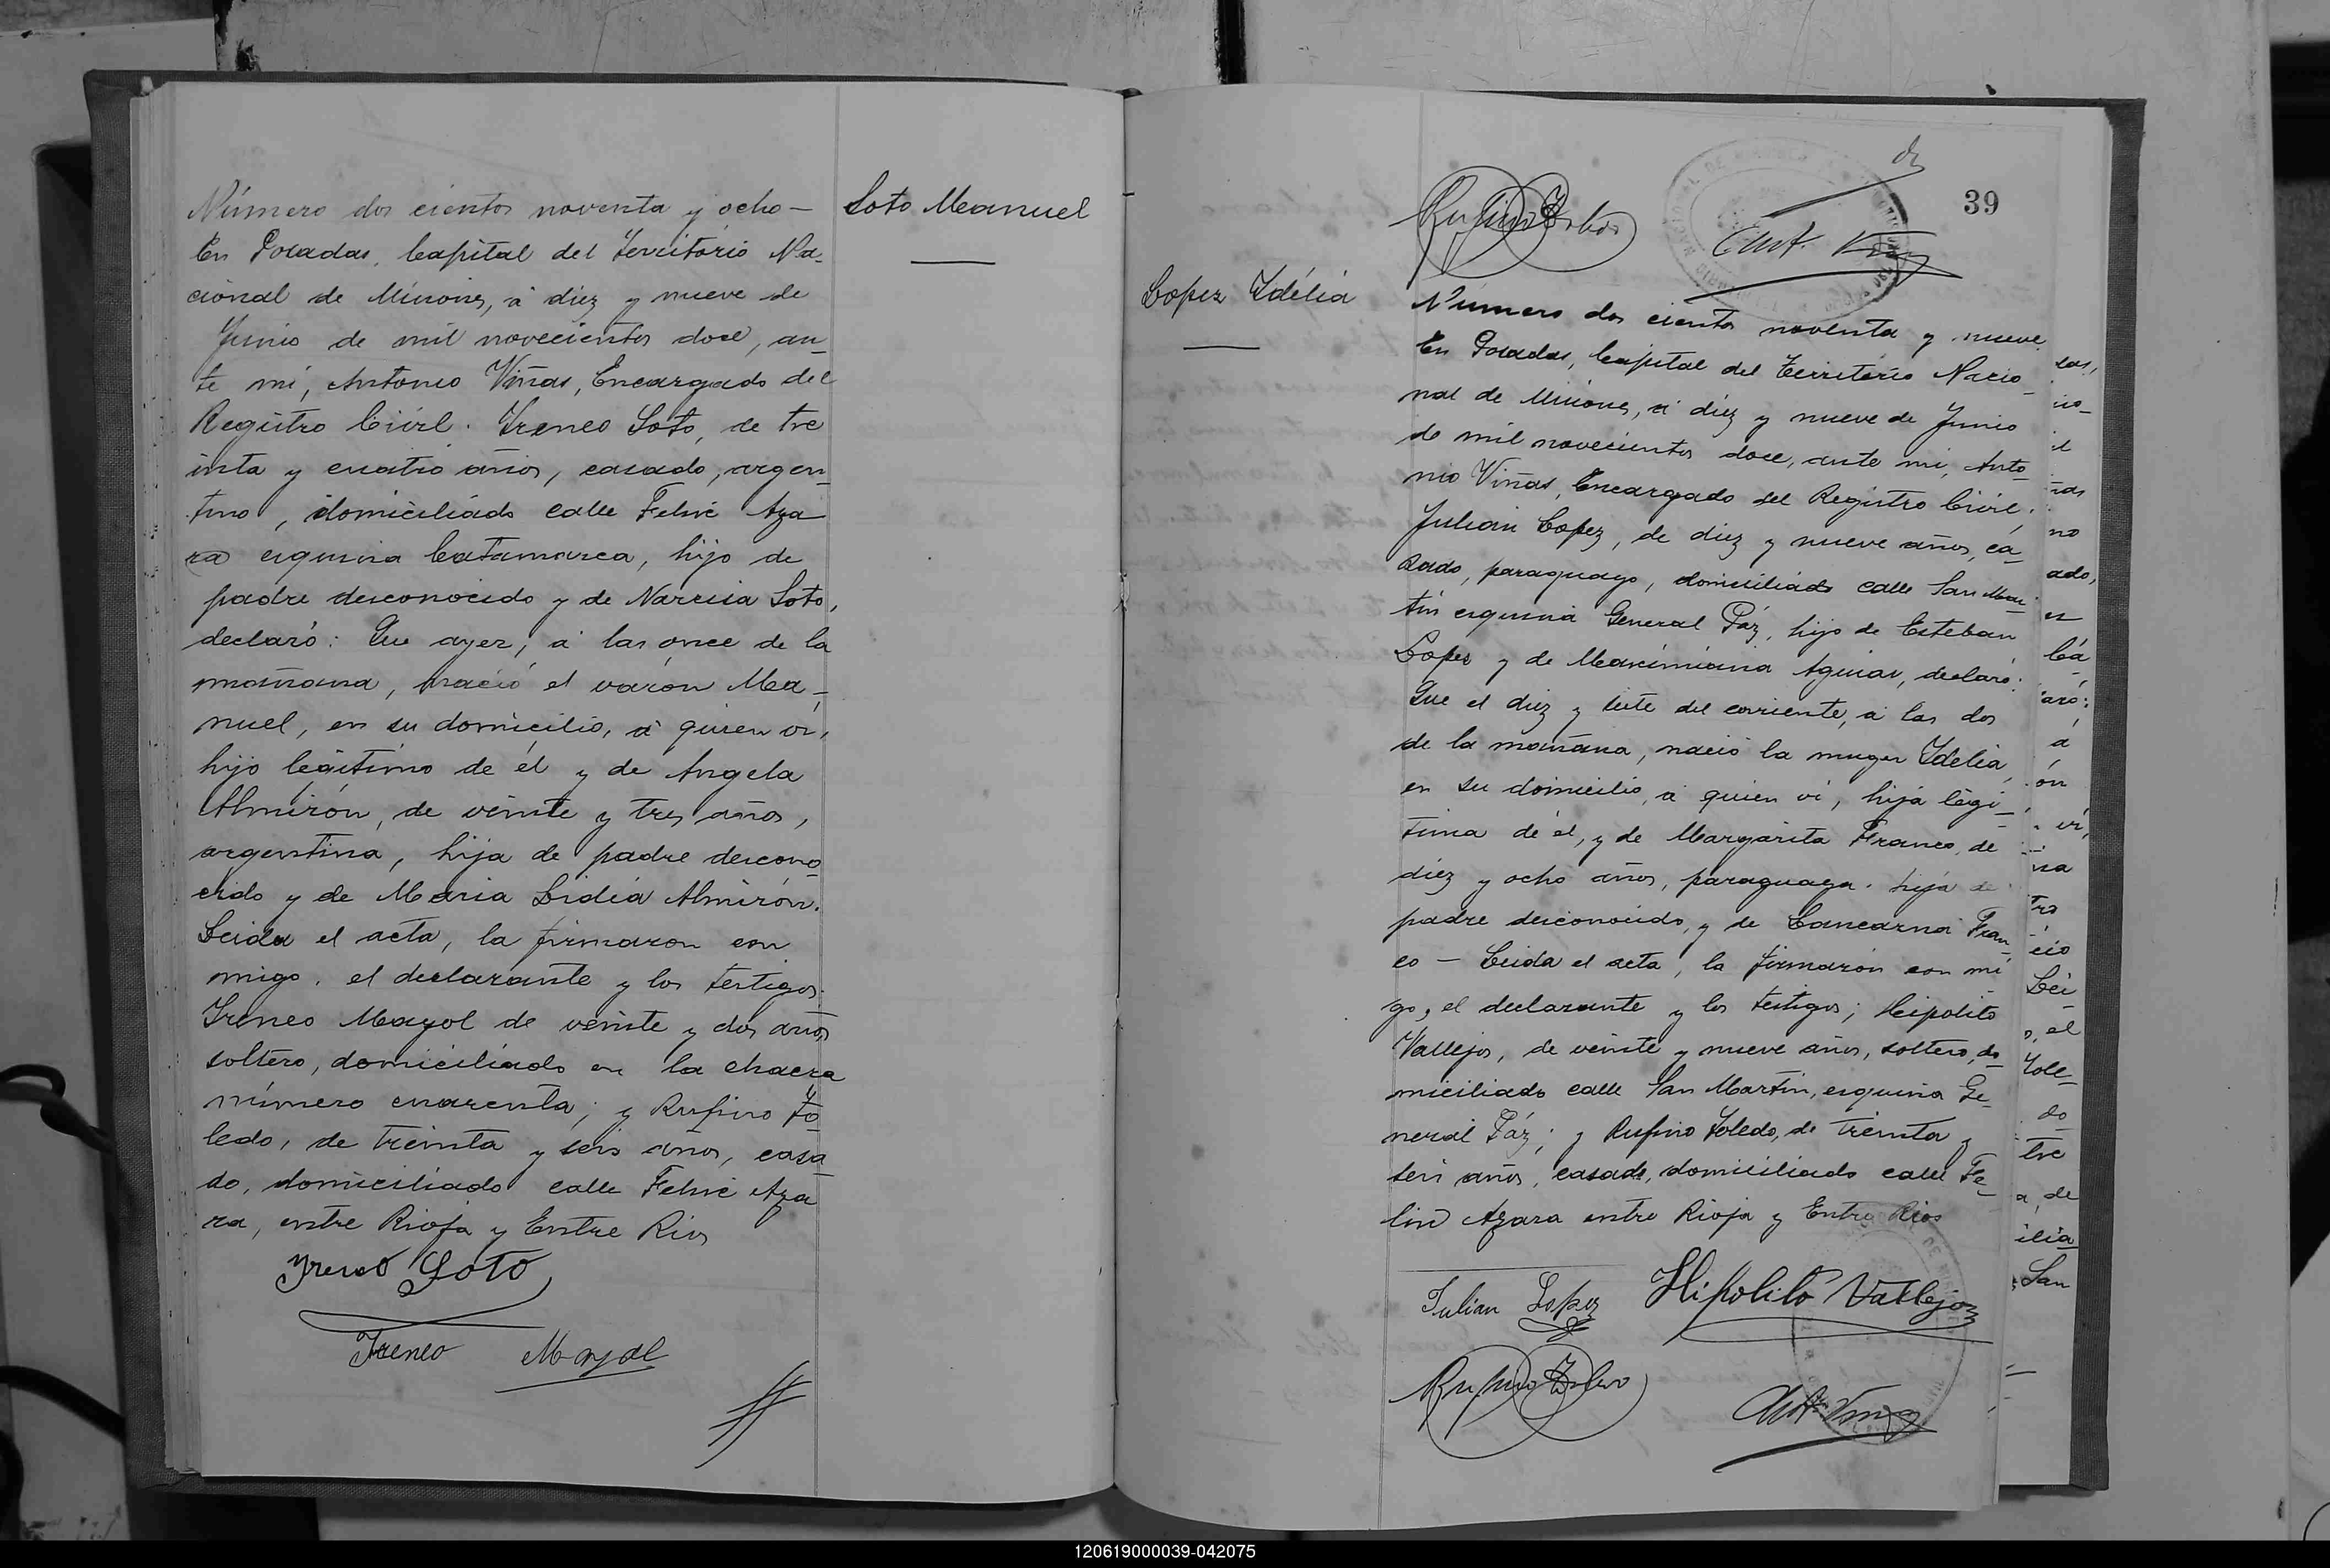 Número dos cientos noventa y ocho —
En Posadas, Capital del Território Na-
cional de Misiones, á diez y nueve de
Junio de mil novecientos doce, an-
te mí, Antonio Viñas, Encargado del
Registro Civil. Yreneo Soto, de tre
inta y cuatro años, casado, argen-
tino, domiciliado calle Felix Aza
ra esquina Catamarca, hijo de
padre desconocido y de Narcisa Soto,
declaró: Que ayer, á las once de la
mañana, nació el varón Ma-
nuel, en su domicilio, á quien ví,
hijo legítimo de él y de Angela
Almirón, de veinte y tres años,
argentina, hija de padre descono
cido y de Maria Lidia Almirón.
Leida el acta, la firmaron con
migo, el declarante y los testigos:
Yreneo Mayol de veinte y dos años
soltero, domiciliado en la chacra
número cuarenta; y Rufino To
ledo, de treinta y seis años, casa
do, domiciliado calle Felix Aza
ra, entre Rioja y Entre Rios
Yreneo Soto
Yreneo Mayol
Soto Manuel
39
Rufino Toledo
Ant. Viñas
Lopez Idélia
Número dos cientos noventa y nueve
En Posadas, Capital del Território Nacio-
nal de Misiones, á diez y nueve de Junio
de mil novecientos doce, ante mi, Anto-
nio Viñas, Encargado del Registro Civil,
Julian Lopez, de diez y nueve años, ca-
sado, paraguayo, domiciliado calle San Mar-
tín esquina General Páz, hijo de Esteban
Lopez y de Maximiana Aguiar, declaró:
Que el diez y siete del corriente, á las dos
de la mañana, nació la muger Idélia,
en su domicilio, á quien ví, hija legi-
tima de él, y de Margarita Franco, de
diez y ocho años, paraguaya, hija de
padre desconocido, y de Fran-
co — Leida el acta, la firmarón con mi
go, el declarante y los testigos; Hipolito
Vallejos, de veinte y nueve años, soltero, do-
miciliado calle San Martin, esquina Ge-
neral Páz; y Rufino Toledo, de treinta y
seis años, casado, domiciliado calle Fe-
lix Azara entre Rioja y Entre Rios
Julian Lopez Hipolito Vallejos
Rufino Toledo
Ant. Viñas
120619000039-042075